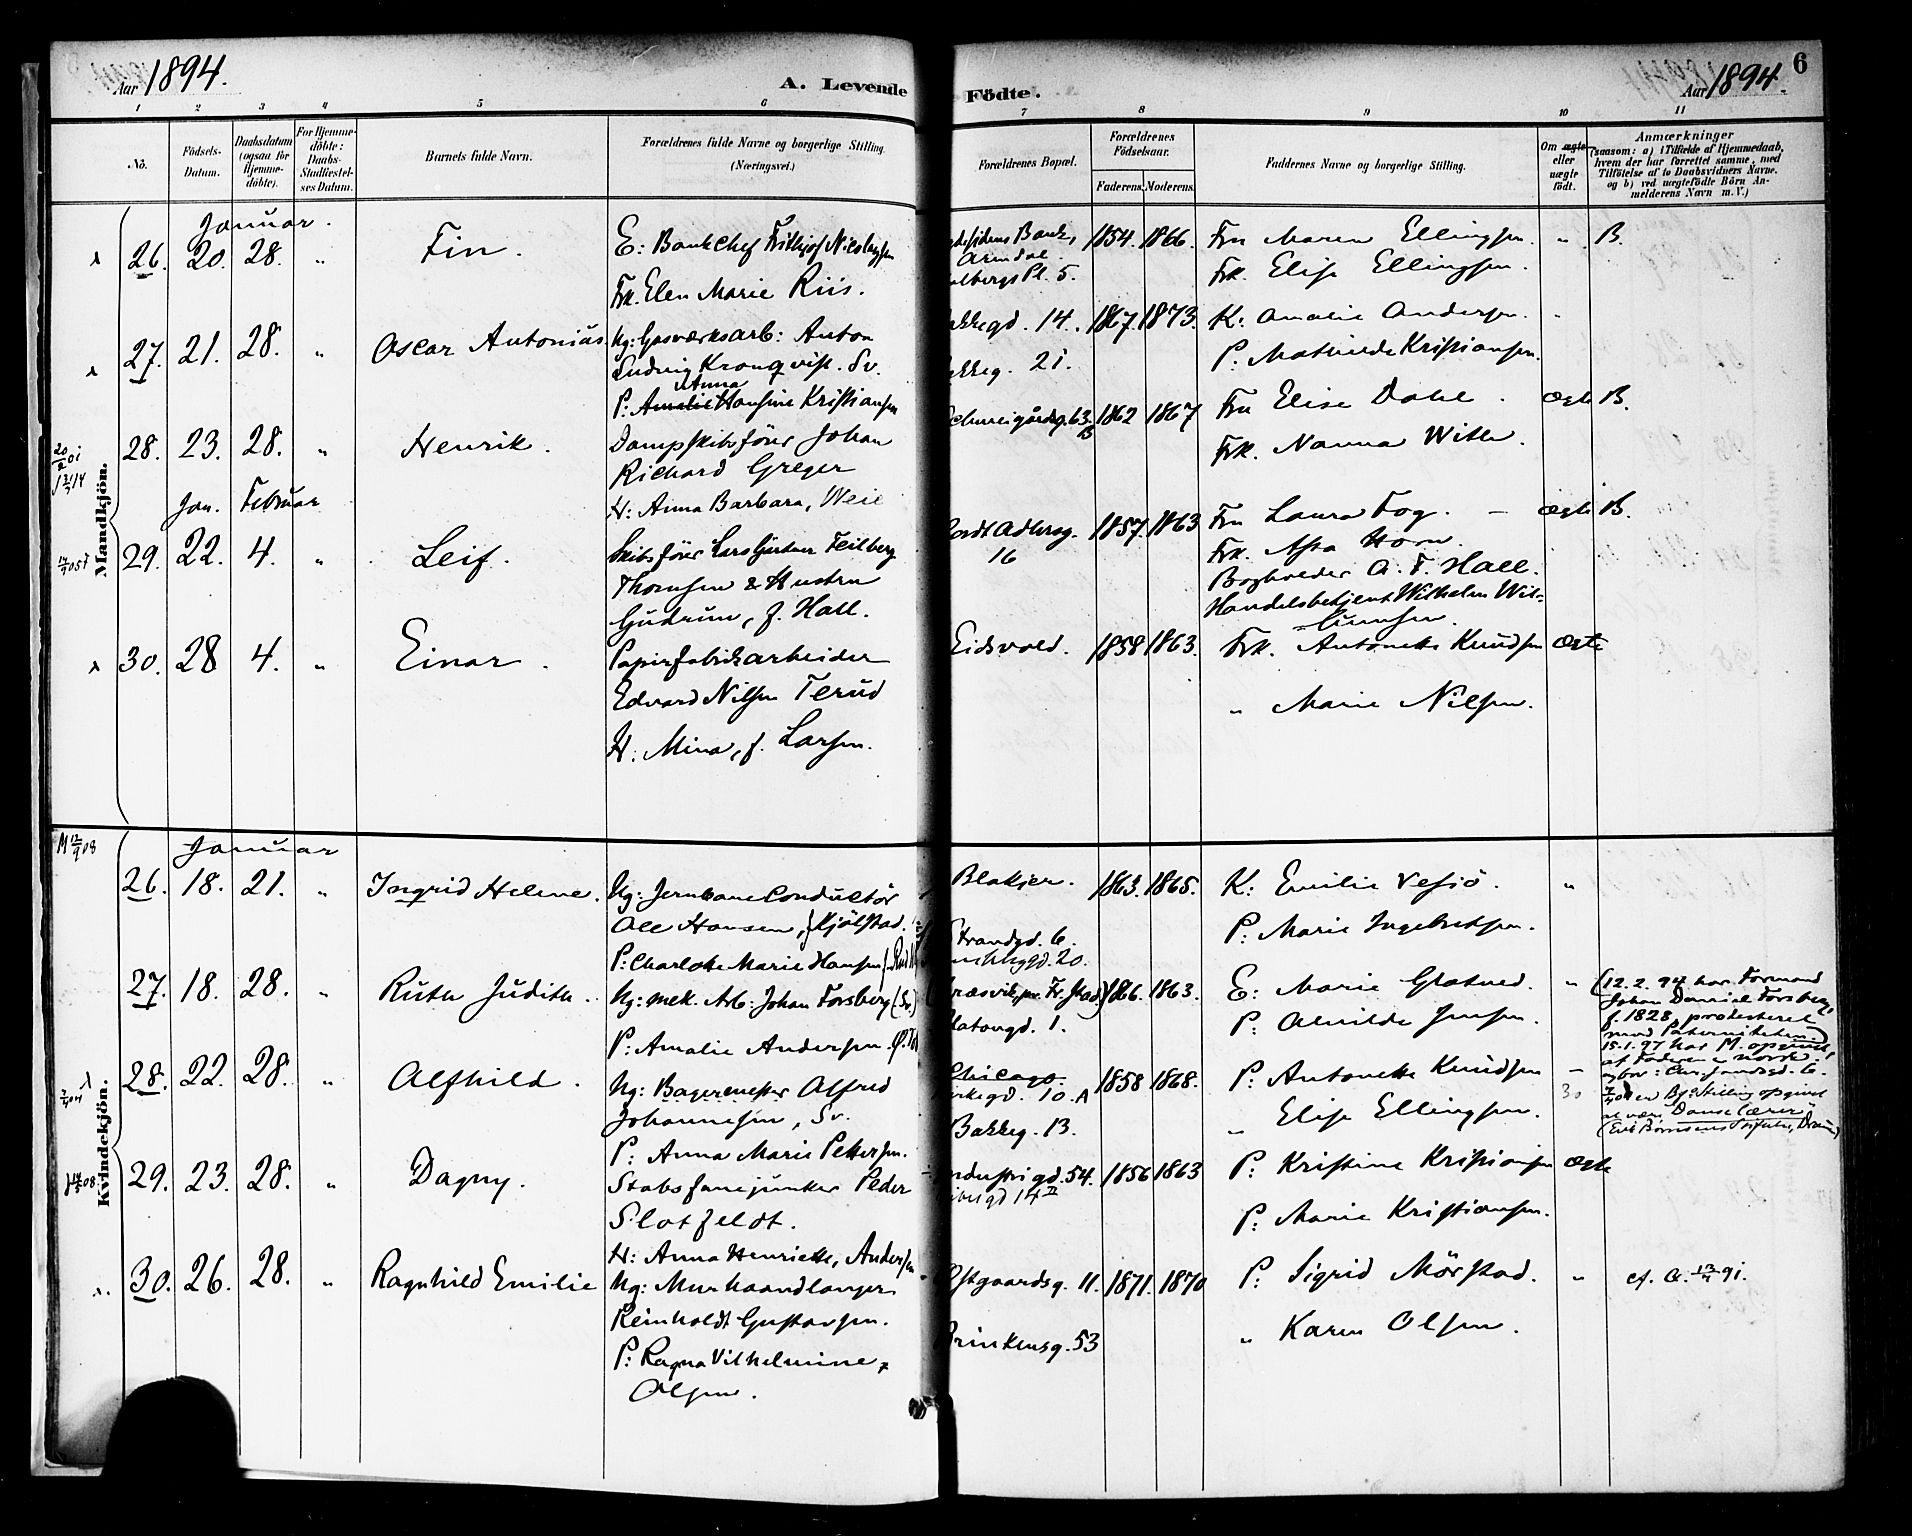 Aar 1894.
A. Levende
Födte.
Aar 1894.
6
1 2 3 4 5 6 7 8 9 10 11
No.
Födsels-
Datum.
Daabsdatum
(ogsaa for
Hjemme-
döbte).
For Hjemme-
döbte:
Daabs-
Stadfæstel-
ses Datum.
Barnets fulde Navn.
Forældrenes fulde Navne og borgerlige Stilling.
(Næringsvei.)
Forældrenes Bopæl.
Forældrenes
Födselsaar.
Faderens. Moderens.
Faddernes Navne og borgerlige Stilling.
Om ægte
eller
uægte
födt.
Anmærkninger
(saasom: a) i Tilfælde af Hjemmedaab,
hvem der har forrettet samme, med
Tilföielse af to Daabsvidners Navne.
og b) ved uægtefödte Börn An-
melderens Navn m. V.)
Mandkjön.
Januar.
26. 20. 28. „ Fin.
E: Bankchef Frithjof Nicolaysen
Frk. Elen Marie Riis.
Bank,
Arendal.
Pl. 5.
1854. 1866.
Fru Maren Ellingsen. „ B.
Frk. Elise Ellingsen.
27. 21. 28. „ Oscar Antonius.
Ug: Gasværksarb: Anton
Ludvig Kronqvist. Sv.
Anna
P: Amalie Hansine Kristiansen
14. 1867. 1873.
21.
K: Amalie Andersen. „
P: Mathilde Kristiansen.
28. 23. 28. „ Henrik.
Dampskibsförer Johan
Richard Greger
H: Anna Barbara, Weie
63.
B
1862 1867
Fru Elise Dahl. Ægte B.
Frk. Nanna With.
Jan. Februar
29. 22. 4. „ Leif.
Skibsförer Lars Gjertner Feilberg
Thomsen & Hustru
Gudrun, f. Hall.
16
1857. 1863
Fru Laura Fog. — Ægte B.
Frk. Asta Horn.
Bogholder A. F. Hall.
Handelsbetjent Wilhelm Wil-
30. 28 4. „ Einar.
Papirfabrikarbeider
Edvard Nilsen Terud
H: Mina, f. Larsen.
Eidsvold. 1858 1863.
Frk. Antonette Knudsen Ægte
„ Marie Nilsen.
Kvindekjön.
M 12/9 08
Januar
26. 18. 21. „ Ingrid Helene.
Ug: Jernbaneconductör
Ole Hansen, Kjölstad.
P: Charlotte Marie Hansen
Blakjer. 1863. 1865.
Strandgd. 6.
20.
K: Emilie Vesjö. „
P: Marie Ingebretsen.
27. 18. 28. „ Ruth Judith.
Ug: mek. Arb: Johan Forsberg (Sv.)
P: Amalie Andersen.
Fr. stad) 1866. 1863.
1.
E: Marie Glatved. „
P: Alvilde Jensen.
(12.2.94 har Formand
Johan Daniel Forsberg,
f. 1828, protesteret
mod Paterniteten.)
15.1.97 har M. opgivet
at Faderen er norsk.
28. 22. 28. „ Alfhild.
Ug: Bagermester Alfred
Johannesen, Sv.
P: Anna Marie Pettersen.
Chicago. 1858 1868.
10. A
Bakkeg. 13.
P: Antonette Knudsen —
„ Elise Ellingsen.
By: Stilling opgivet
at være Danselærer
29. 23. 28. „ Dagny.
Stabsfanejunker Peder
Slotfeldt.
H: Anna Henriette, Andersen
54. 1856 1863
14 II
P: Kristine Kristiansen Ægte
P: Marie Kristiansen.
30. 26. 28. „ Ragnhild Emilie
Ug: Murhaandlanger
Reinholdt Gustavsen.
P: Ragna Vilhelmine
Olsen.
11. 1871. 1870
53
P: Sigrid Mörstad. „
„ Karen Olsen.